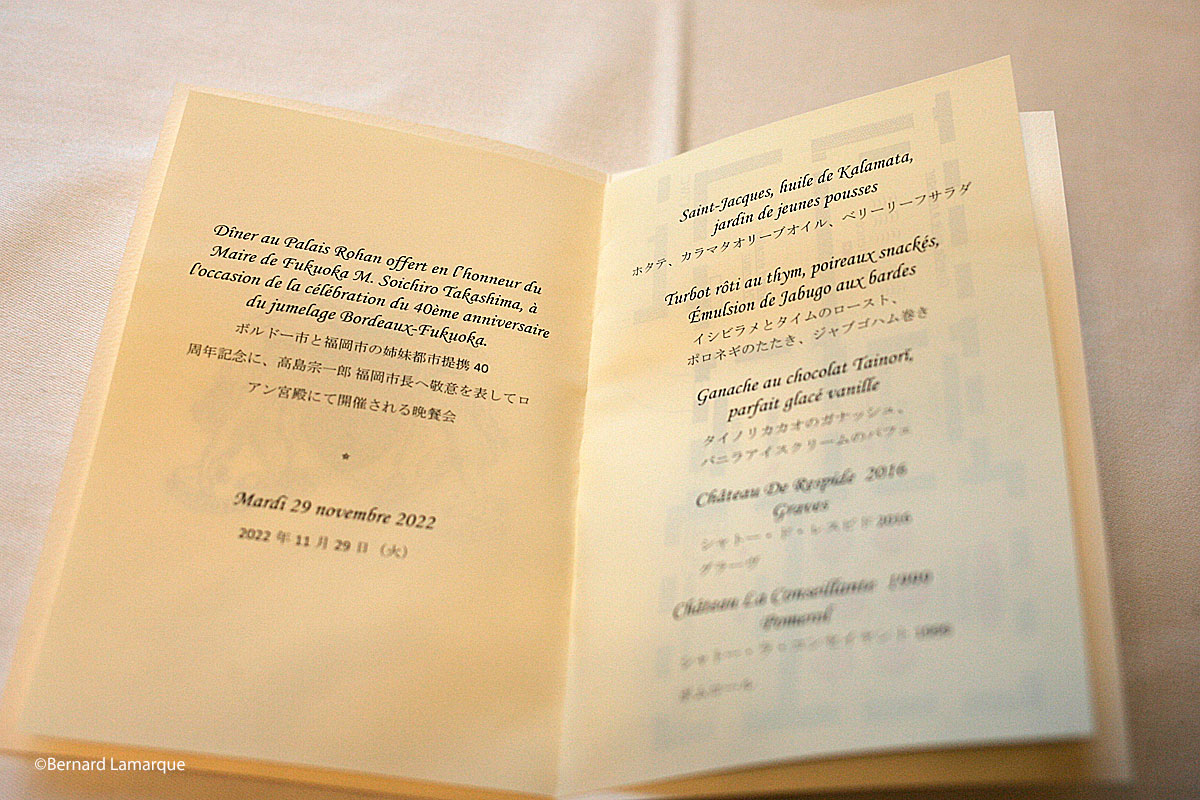 Dîner au Palais Rohan offert en l'honneur du
Maire de Fukuoka M. Soichiro Takashima, à
l'occasion de la célébration du 40ème anniversaire
du jumelage Bordeaux-Fukuoka.
ボルドー市と福岡市の姉妹都市提携 40
周年記念に、高島宗一郎 福岡市長へ敬意を表してロ
アン宮殿にて開催される晩餐会
*
Mardi 29 novembre 2022
2022 年 11 月 29 日（火）
Saint-Jacques, huile de Kalamata,
jardin de jeunes pousses
ホタテ、カラマタオリーブオイル、ベリーリーフサラダ
Turbot rôti au thym, poireaux snackés,
Émulsion de Jabugo aux bardes
イシビラメとタイムのロースト、
ポロネギのたたき、ジャブゴハム巻き
Ganache au chocolat Tainori,
parfait glacé vanille
タイノリカカオのガナッシュ、
バニラアイスクリームのパフェ
Château De Respide 2016
Graves
シャトー・ド・レスピド 2016
グラーヴ
Château La Conseillante 1999
Pomerol
シャトー・ラ・コンセイヤント 1999
©Bernard Lamarque